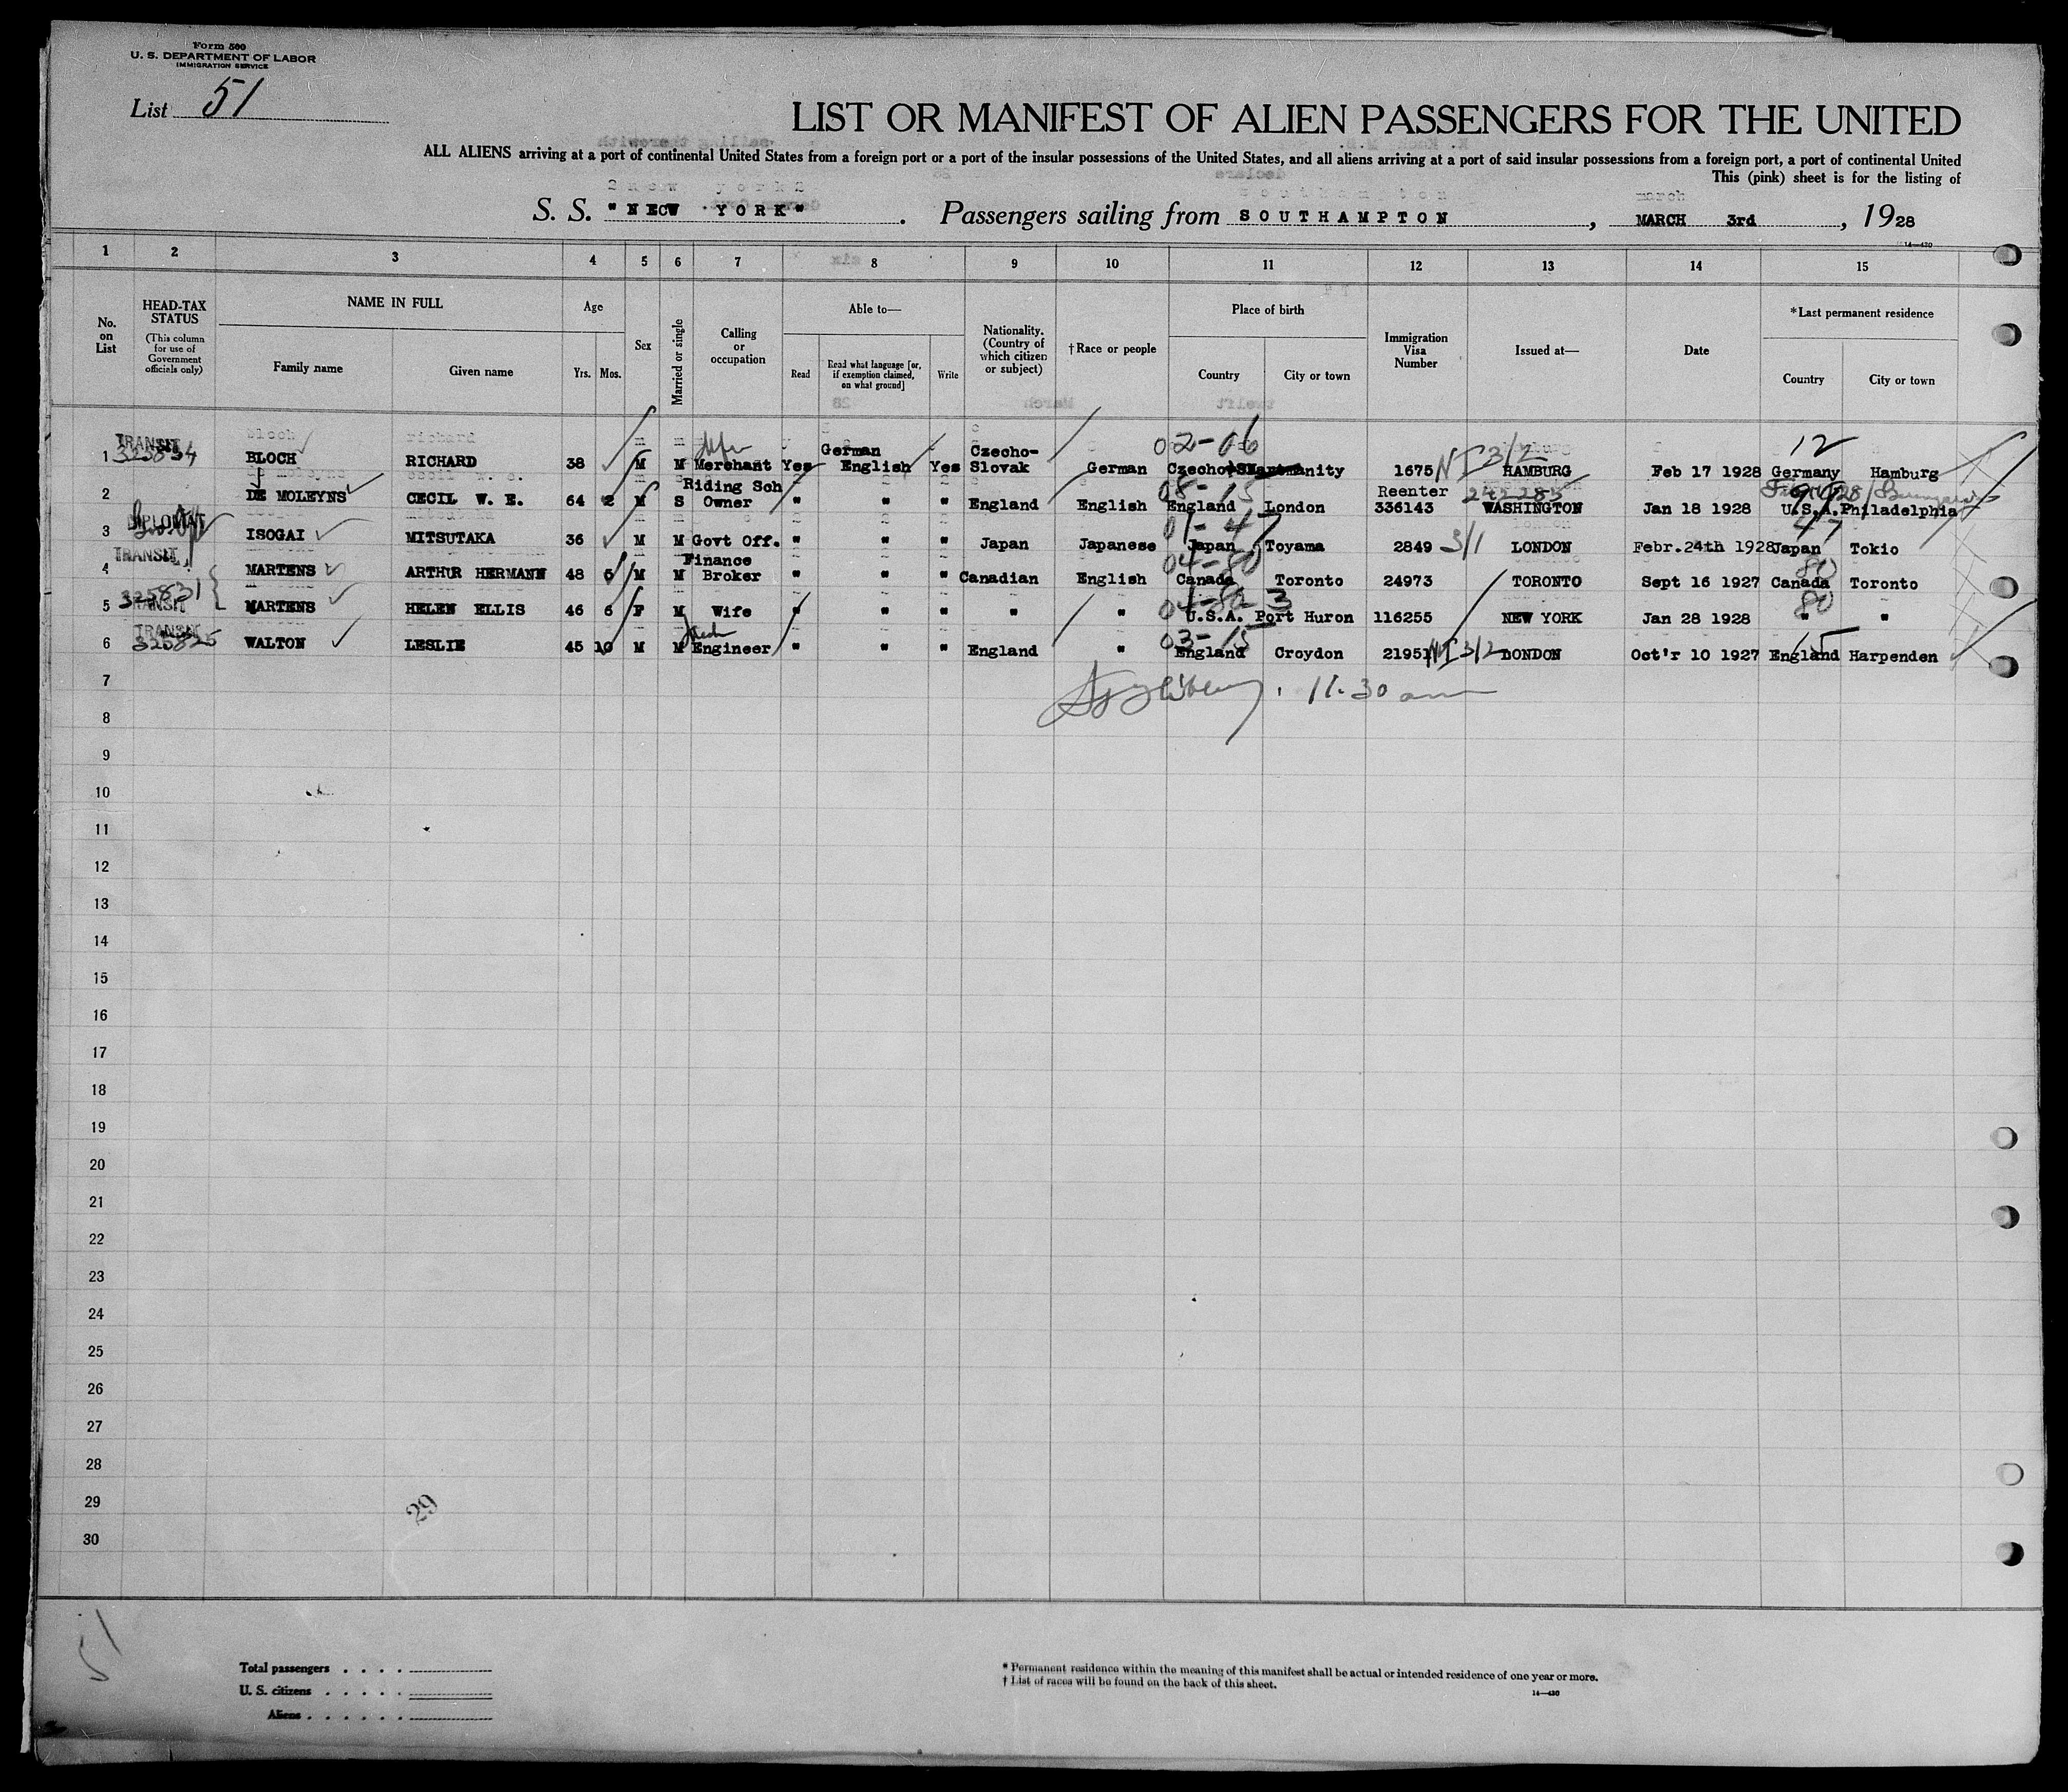 Form 500
U. S. DEPARTMENT OF LABOR
IMMIGRATION SERVICE
List 51
LIST OR MANIFEST OF ALIEN PASSENGERS FOR THE UNITED
ALL ALIENS arriving at a port of continental United States from a foreign port or a port of the insular possessions of the United States, and all aliens arriving at a port of said insular possessions from a foreign port, a port of continental United
This (pink) sheet is for the listing of
S. S. "NEW YORK". Passengers sailing from SOUTHAMPTON, MARCH 3rd, 1928
14—430
1 2 3 4 5 6 7 8 9 10 11 12 13 14 15
No. on List
HEAD-TAX STATUS
(This column for use of Government officials only)
NAME IN FULL
Family name
Given name
Age
Yrs. Mos.
Sex
Married or single
Calling or occupation
Able to—
Read
Read what language [or, if exemption claimed, on what ground]
Write
Nationality. (Country of which citizen or subject)
†Race or people
Place of birth
Country
City or town
Immigration Visa Number
Issued at—
Date
*Last permanent residence
Country
City or town
TRANSIT German Czecho- 02-06 12
1 325834 BLOCH RICHARD 38 M M Merchant Yes English Yes Slovak German Czecho 1675 NI 3/2 HAMBURG Feb 17 1928 Germany Hamburg
Riding Sch 08-15 Reenter 242285
2 DE MOLEYNS CECIL W. E. 64 2 M S Owner " " " England English England London 336143 WASHINGTON Jan 18 1928 U.S.A. Philadelphia
DIPLOMAT 01-47 47
3 ISOGAI MITSUTAKA 36 M M Govt Off. " " " Japan Japanese Japan Toyama 2849 3/1 LONDON Febr.24th 1928 Japan Tokio
TRANSIT Finance 04-80 80
4 MARTENS ARTHUR HERMANN 48 6 M M Broker " " " Canadian English Canada Toronto 24973 TORONTO Sept 16 1927 Canada Toronto
325831 TRANSIT 04-80 3 80
5 MARTENS HELEN ELLIS 46 6 F M Wife " " " " " U.S.A. Port Huron 116255 NEW YORK Jan 28 1928 " "
TRANSIT 03-15 15
6 325825 WALTON LESLIE 45 10 M M Engineer " " " England " England Croydon 21951 NI 3/2 LONDON Oct'r 10 1927 England Harpenden
7 11.30 am
8
9
10
11
12
13
14
15
16
17
18
19
20
21
22
23
24
25
26
27
28
29
29
30
51
Total passengers . . . .
U. S. citizens . . . . .
Aliens . . . . . .
* Permanent residence within the meaning of this manifest shall be actual or intended residence of one year or more.
† List of races will be found on the back of this sheet.
14—430